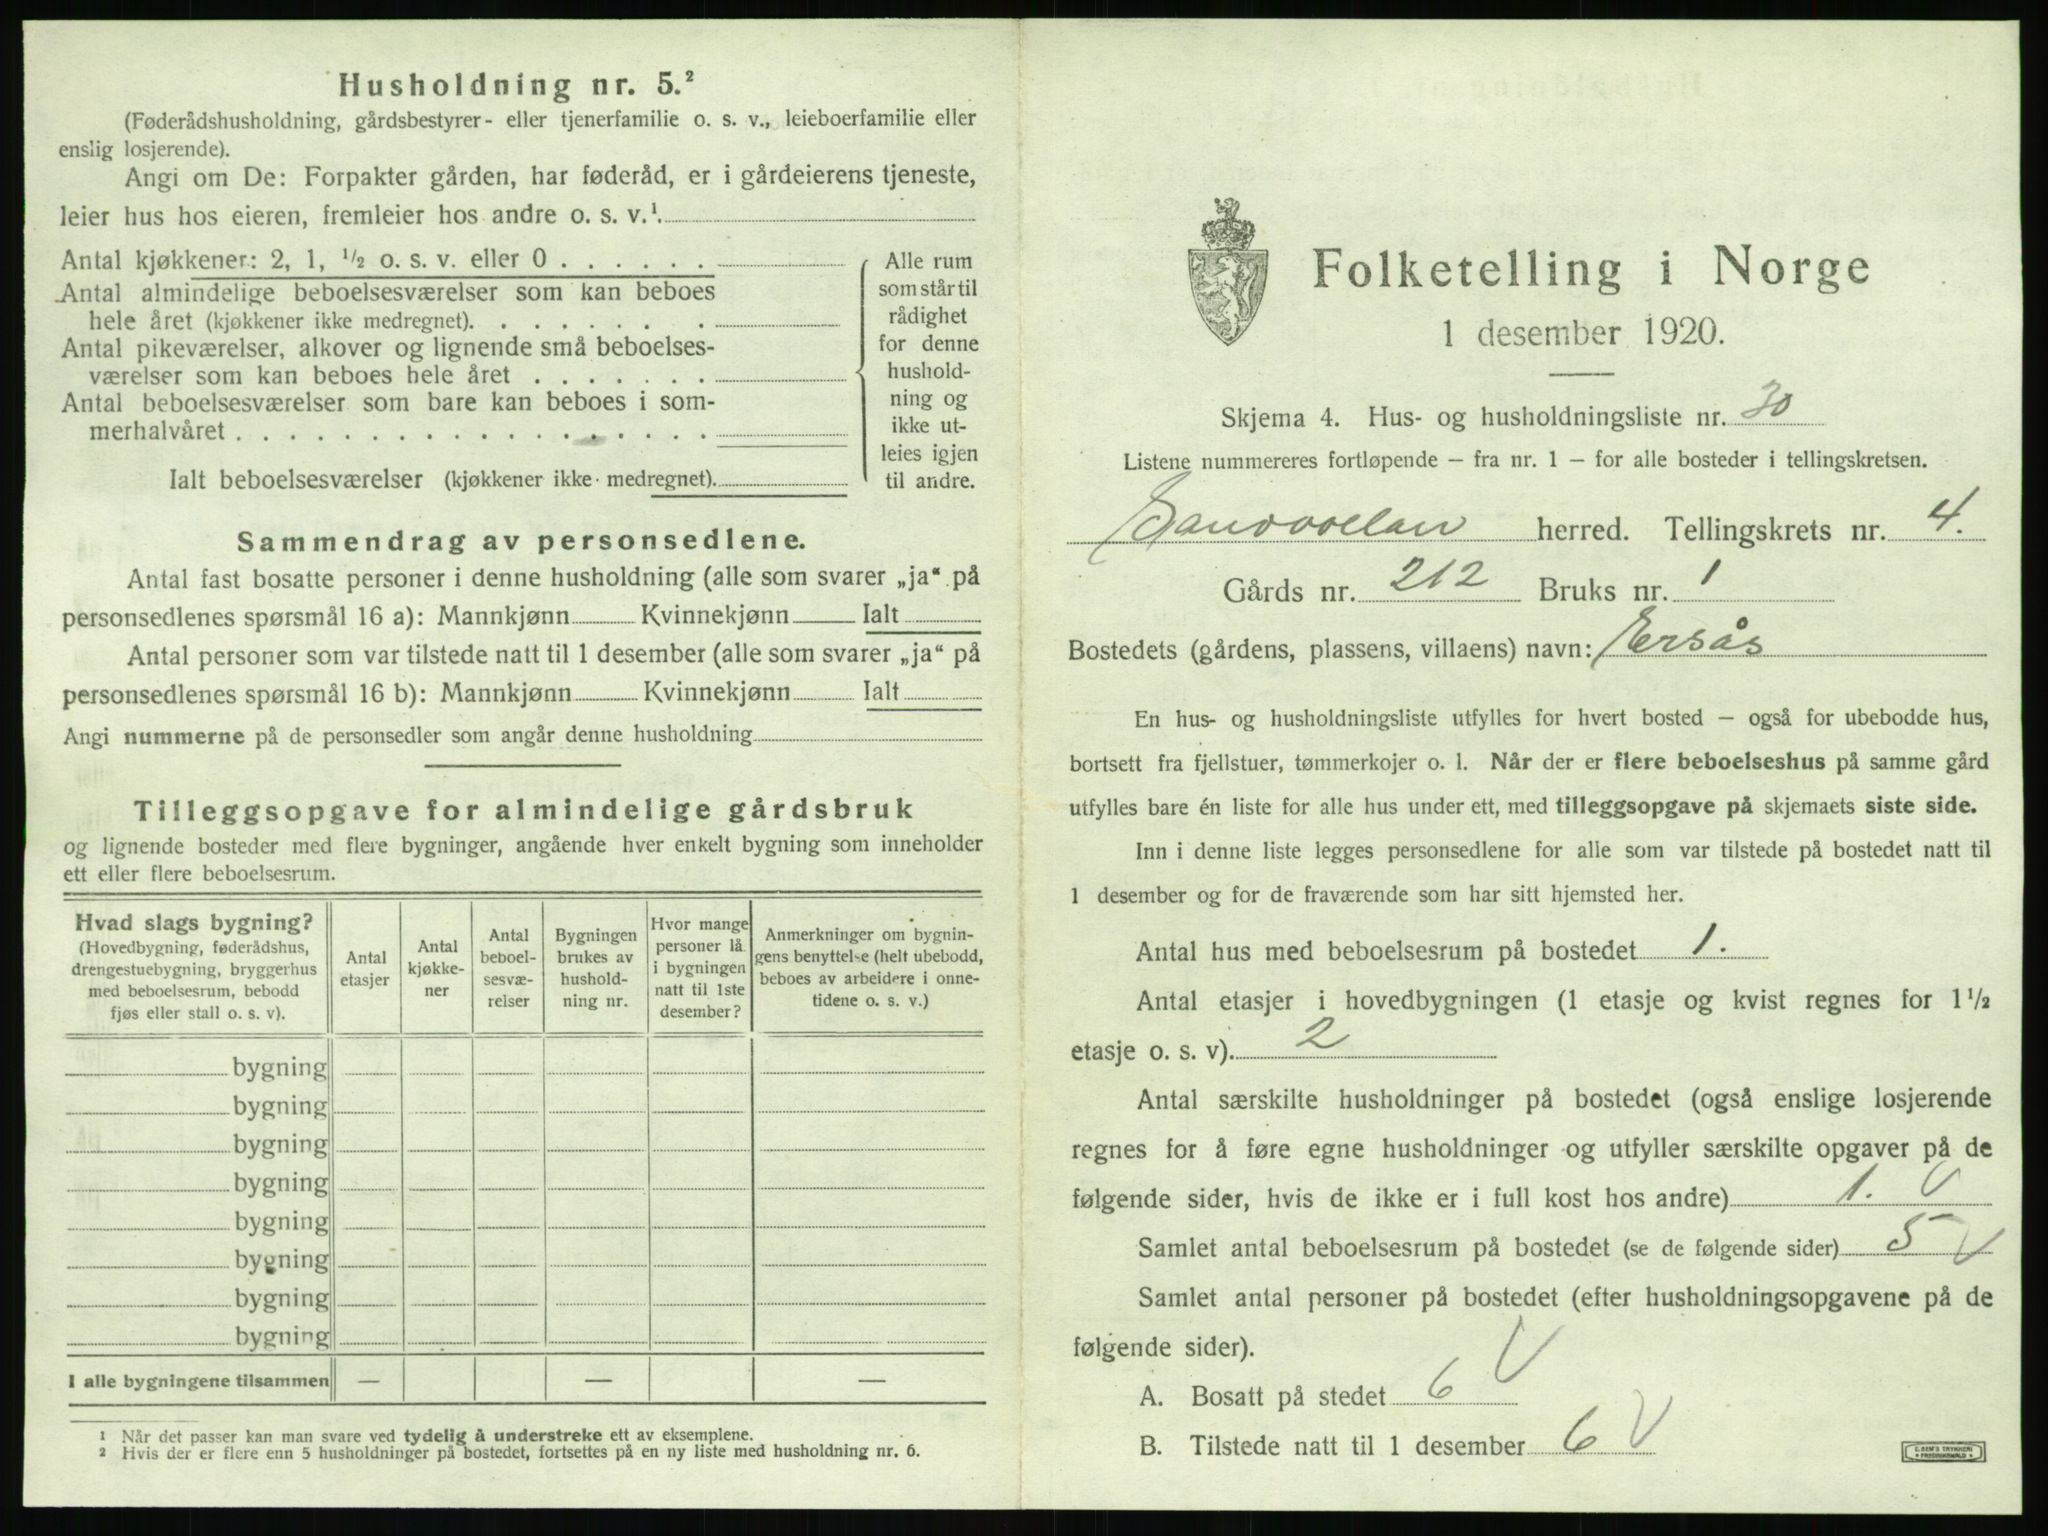 Husholdning nr. 5.²
(Føderådshusholdning, gårdsbestyrer- eller tjenerfamilie o. s. v., leieboerfamilie eller
enslig losjerende).
Angi om De: Forpakter gården, har føderåd, er i gårdeierens tjeneste,
leier hus hos eieren, fremleier hos andre o. s. v.¹
Antal kjøkkener: 2, 1, ½ o. s. v. eller 0 . . . . . .
Antal almindelige beboelsesværelser som kan beboes
hele året (kjøkkener ikke medregnet). . . . . . . .
Antal pikeværelser, alkover og lignende små beboelses-
værelser som kan beboes hele året . . . . . . .
Antal beboelsesværelser som bare kan beboes i som-
merhalvåret . . . . . . . . . . . . . . . . . .
Ialt beboelsesværelser (kjøkkener ikke medregnet).
Alle rum
som står til
rådighet
for denne
hushold-
ning og
ikke ut-
leies igjen
til andre.
Sammendrag av personsedlene.
Antal fast bosatte personer i denne husholdning (alle som svarer „ja“ på
personsedlenes spørsmål 16 a): Mannkjønn Kvinnekjønn Ialt
Antal personer som var tilstede natt til 1 desember (alle som svarer „ja“ på
personsedlenes spørsmål 16 b): Mannkjønn Kvinnekjønn Ialt
Angi nummerne på de personsedler som angår denne husholdning
Tilleggsopgave for almindelige gårdsbruk
og lignende bosteder med flere bygninger, angående hver enkelt bygning som inneholder
ett eller flere beboelsesrum.
Hvad slags bygning?
(Hovedbygning, føderådshus,
drengestuebygning, bryggerhus
med beboelsesrum, bebodd
fjøs eller stall o. s. v).
Antal
etasjer
Antal
kjøkke-
ner
Antal
beboel-
sesvæ-
relser
Bygningen
brukes av
hushold-
ning nr.
Hvor mange
personer lå
i bygningen
natt til 1ste
desember?
Anmerkninger om bygnin-
gens benyttelse (helt ubebodd,
beboes av arbeidere i onne-
tidene o. s. v.)
bygning
bygning
bygning
bygning
bygning
bygning
bygning
bygning
I alle bygningene tilsammen — — —
¹ Når det passer kan man svare ved tydelig å understreke ett av eksemplene.
² Hvis der er flere enn 5 husholdninger på bostedet, fortsettes på en ny liste med husholdning nr. 6.
Folketelling i Norge
1 desember 1920.
Skjema 4. Hus- og husholdningsliste nr. 30
Listene nummereres fortløpende — fra nr. 1 — for alle bosteder i tellingskretsen.
herred. Tellingskrets nr. 4.
Gårds nr. 212 Bruks nr. 1
Bostedets (gårdens, plassens, villaens) navn: Ersås
En hus- og husholdningsliste utfylles for hvert bosted — også for ubebodde hus,
bortsett fra fjellstuer, tømmerkojer o. l. Når der er flere beboelseshus på samme gård
utfylles bare én liste for alle hus under ett, med tilleggsopgave på skjemaets siste side.
Inn i denne liste legges personsedlene for alle som var tilstede på bostedet natt til
1 desember og for de fraværende som har sitt hjemsted her.
Antal hus med beboelsesrum på bostedet 1.
Antal etasjer i hovedbygningen (1 etasje og kvist regnes for 1½
etasje o. s. v). 2
Antal særskilte husholdninger på bostedet (også enslige losjerende
regnes for å føre egne husholdninger og utfyller særskilte opgaver på de
følgende sider, hvis de ikke er i full kost hos andre) 1. V
Samlet antal beboelsesrum på bostedet (se de følgende sider) 5 V
Samlet antal personer på bostedet (efter husholdningsopgavene på de
følgende sider).
A. Bosatt på stedet 6 V
B. Tilstede natt til 1 desember 6 V